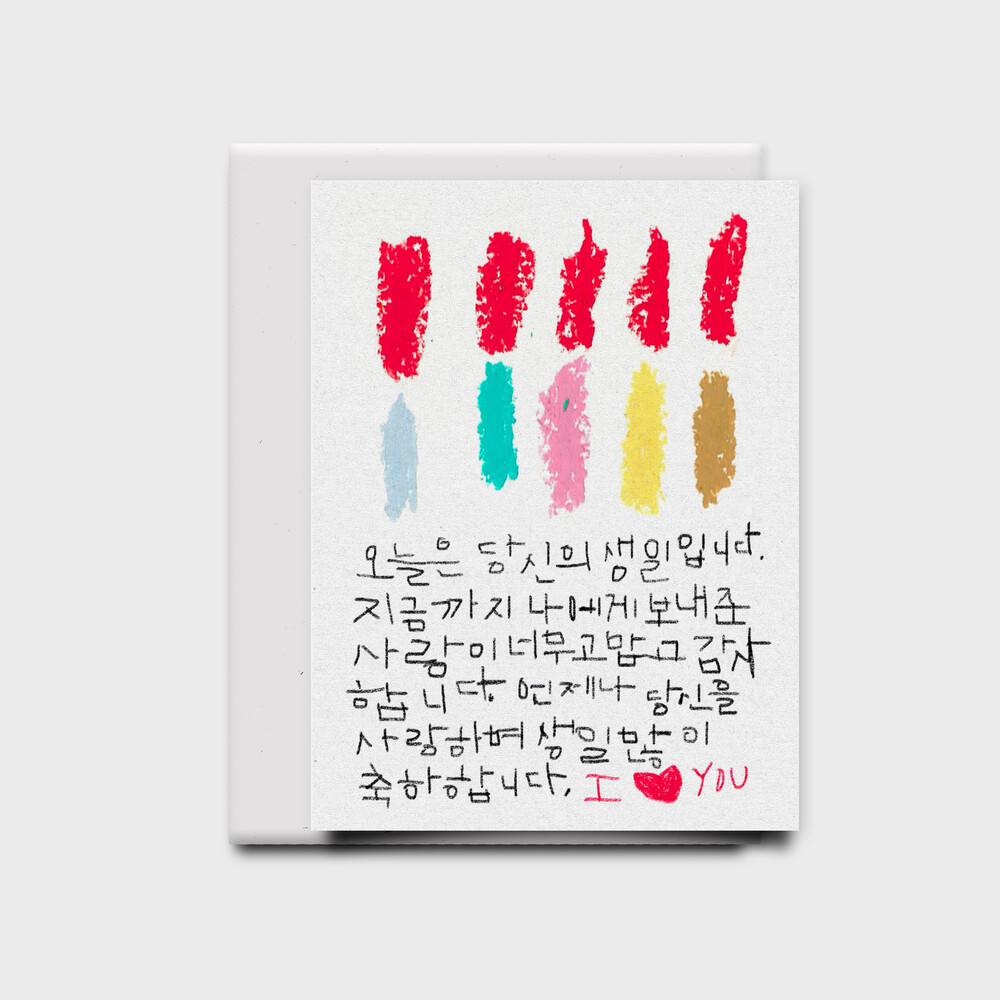 오늘은 당신의 생일입니다.
지금까지 나에게 보내준
사랑이 너무 고맙고 감사
합니다. 언제나 당신을
사랑하며 생일 많이
축하합니다. I ❤ YOU